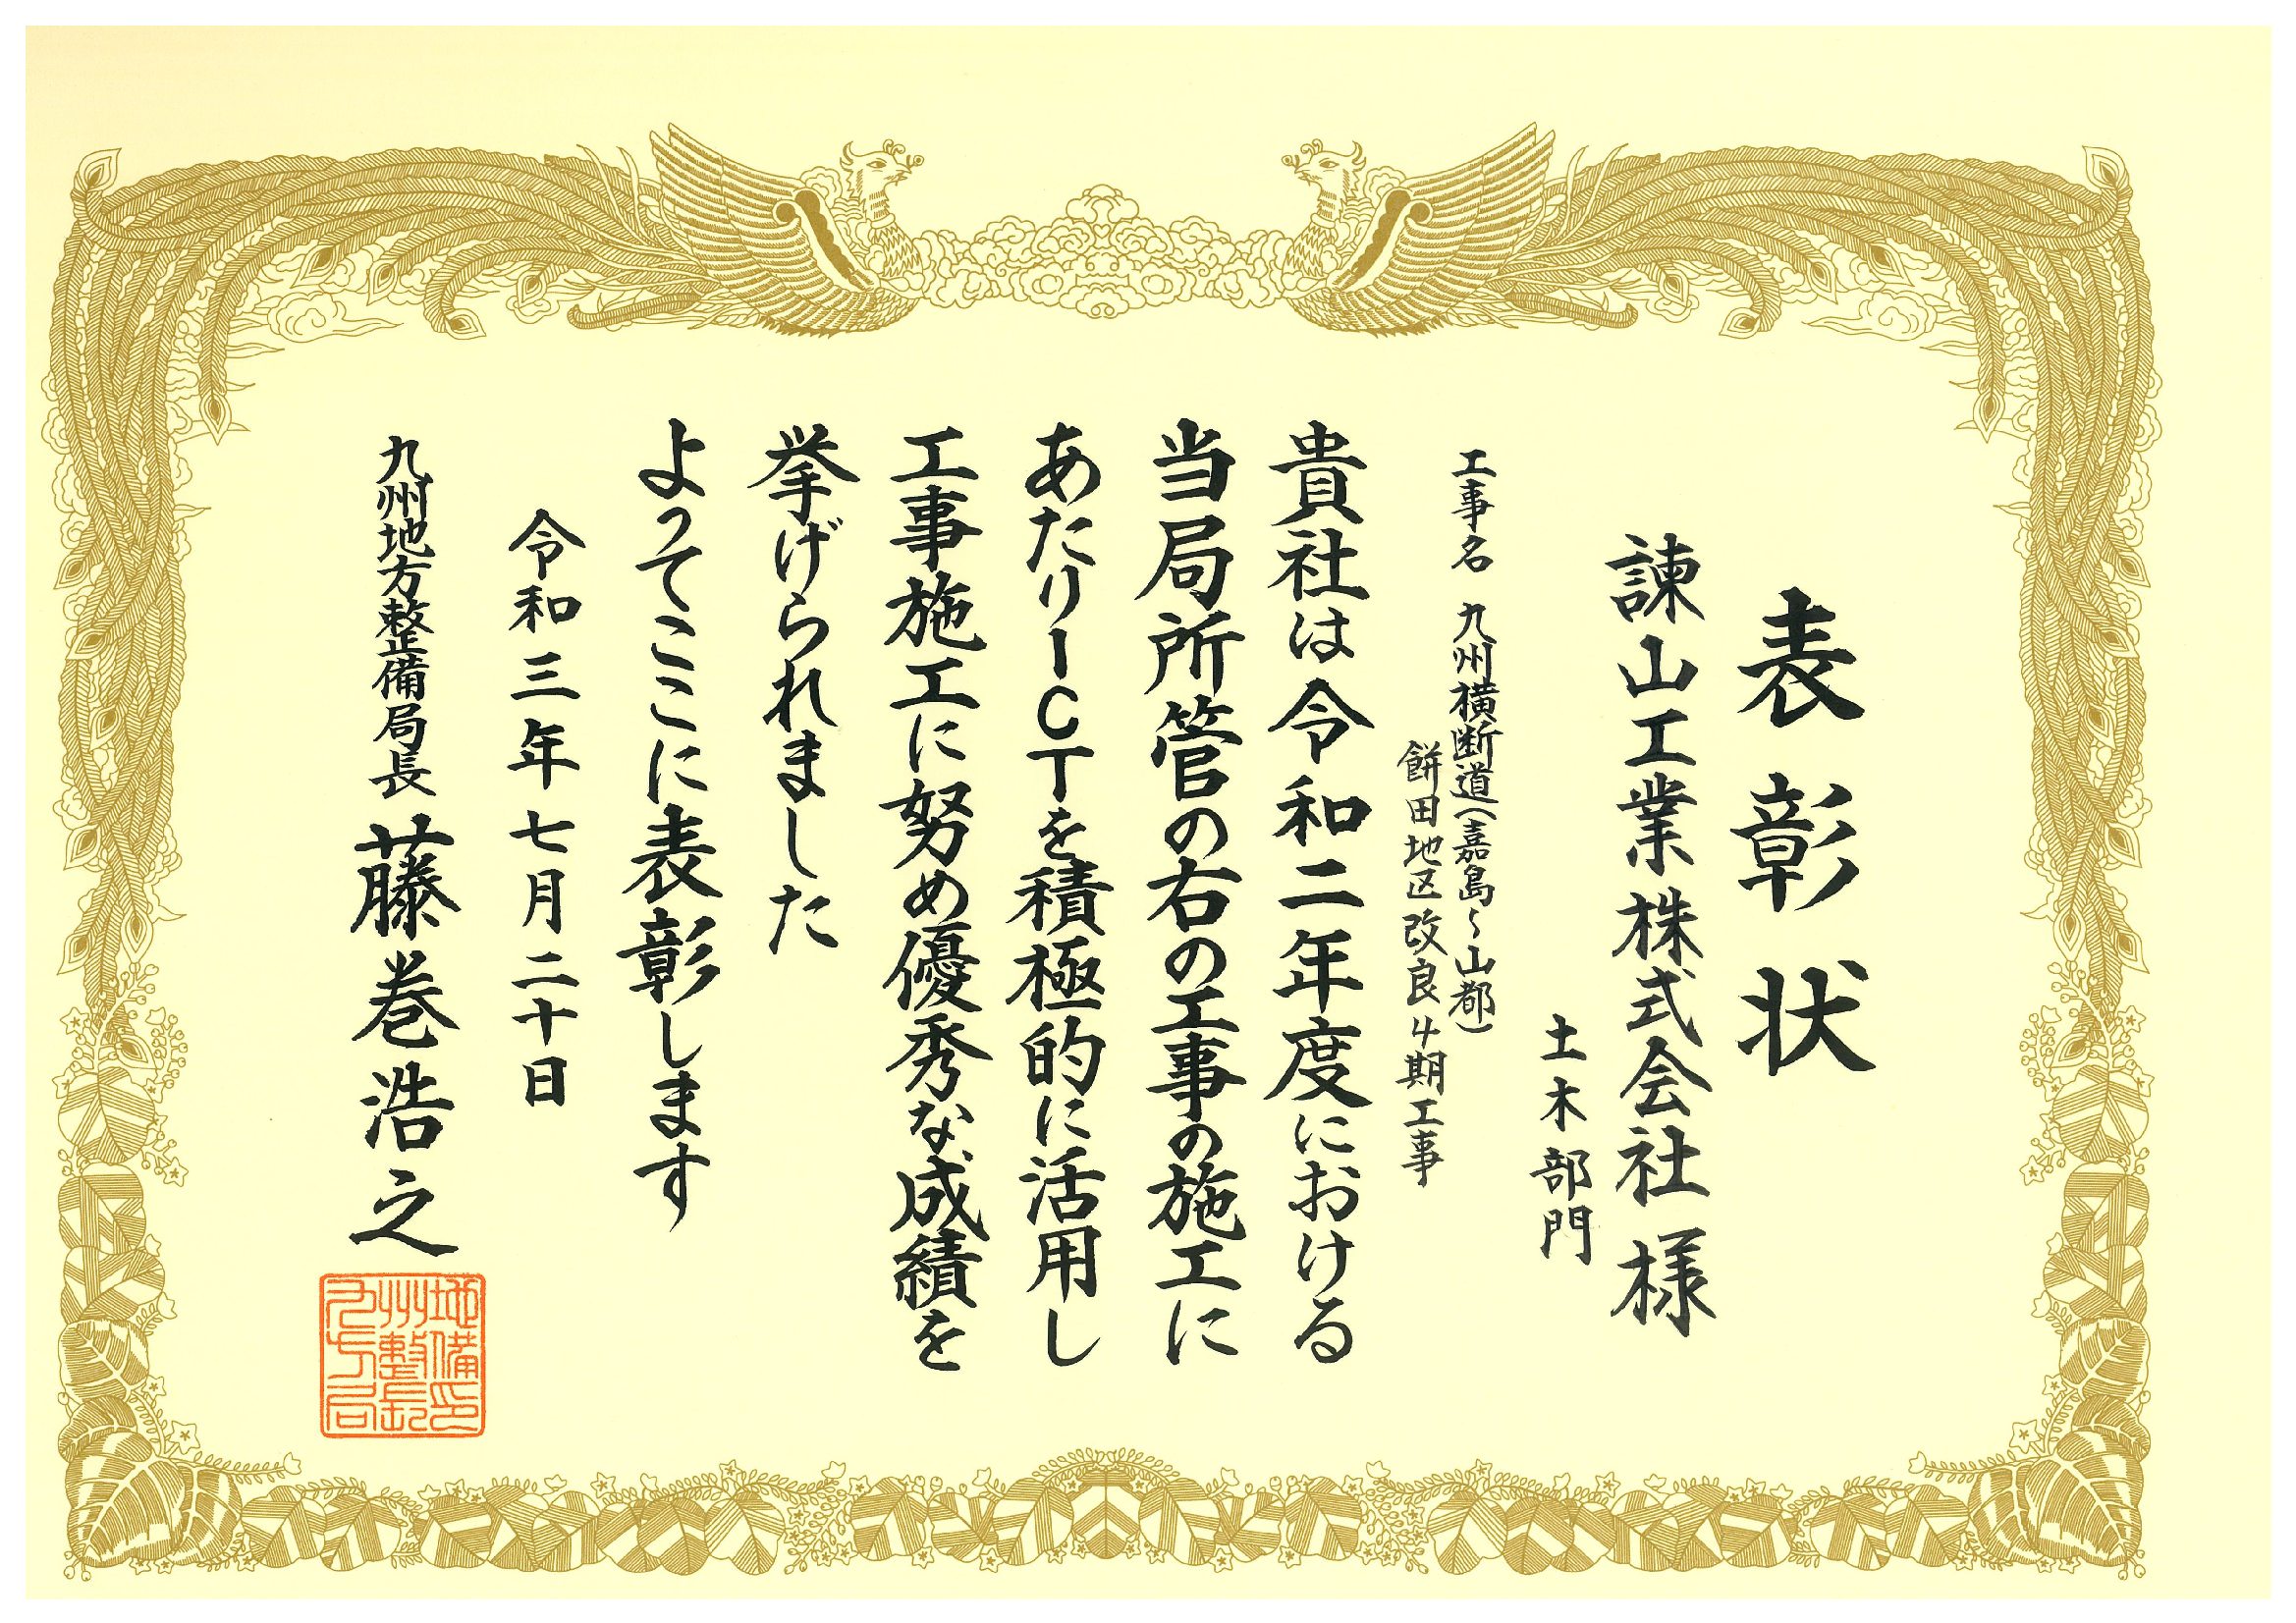 表彰状
諫山工業株式会社様
土木部門
工事名 九州横断道(嘉島~山都)
餅田地区改良4期工事
貴社は令和二年度における
当局所管の右の工事の施工に
あたりICTを積極的に活用し
工事施工に努め優秀な成績を
挙げられました
よってここに表彰します
令和三年七月二十日
九州地方整備局長 藤巻浩之
地備印
州整長
九方局